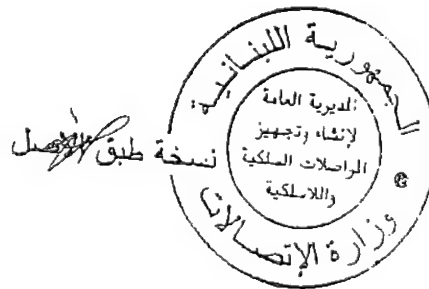 الجمهورية اللبنانية
المديرية العامة
لإنشاء وتجهيز
المواصلات السلكية
واللاسلكية
وزارة الإتصالات
نسخة طبق الأصل